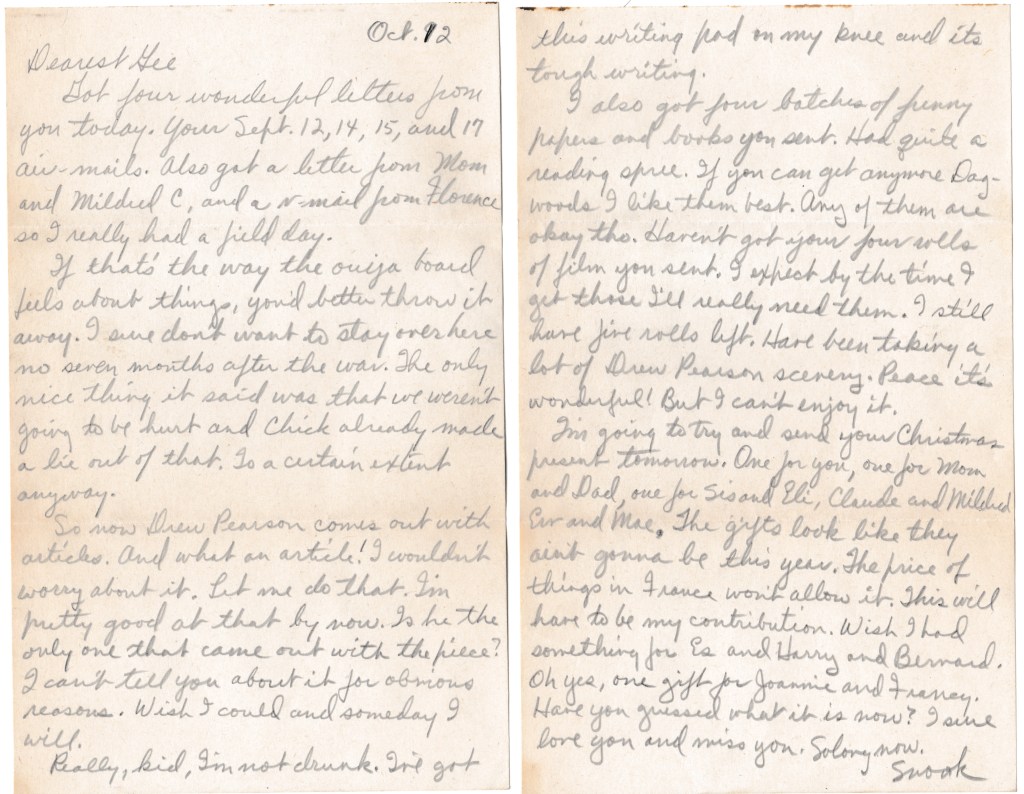 Oct. 12
Dearest Gee
Got four wonderful letters from
you today. Your Sept. 12, 14, 15, and 17
air-mails. Also got a letter from Mom
and Mildred C, and a v-mail from Florence
so I really had a field day.
If that's the way the ouija board
feels about things, you'd better throw it
away. I sure don't want to stay over here
no seven months after the war. The only
nice thing it said was that we weren't
going to be hurt and Chick already made
a lie out of that. To a certain extent
anyway.
So now Drew Pearson comes out with
articles. And what an article! I wouldn't
worry about it. Let me do that. I'm
pretty good at that by now. Is he the
only one that came out with the piece?
I can't tell you about it for obvious
reasons. Wish I could and someday I
will.
Really, kid, I'm not drunk. I've got
this writing pad on my knee and its
tough writing.
I also got four batches of funny
papers and books you sent. Had quite a
reading spree. If you can get anymore Dag-
woods I like them best. Any of them are
okay tho. Haven't got your four rolls
of film you sent. I expect by the time I
get those I'll really need them. I still
have five rolls left. Have been taking a
lot of Drew Pearson scenery. Peace it's
wonderful! But I can't enjoy it.
I'm going to try and send your Christmas
present tomorrow. One for you, one for Mom
and Dad, one for Sis and Eli, Claude and Mildred
Erv and Mae. The gifts look like they
ain't gonna be this year. The price of
things in France won't allow it. This will
have to be my contribution. Wish I had
something for Es and Harry and Bernard.
Oh yes, one gift for Joannie and Francy.
Have you guessed what it is now? I sure
love you and miss you. Solong now.
Snook